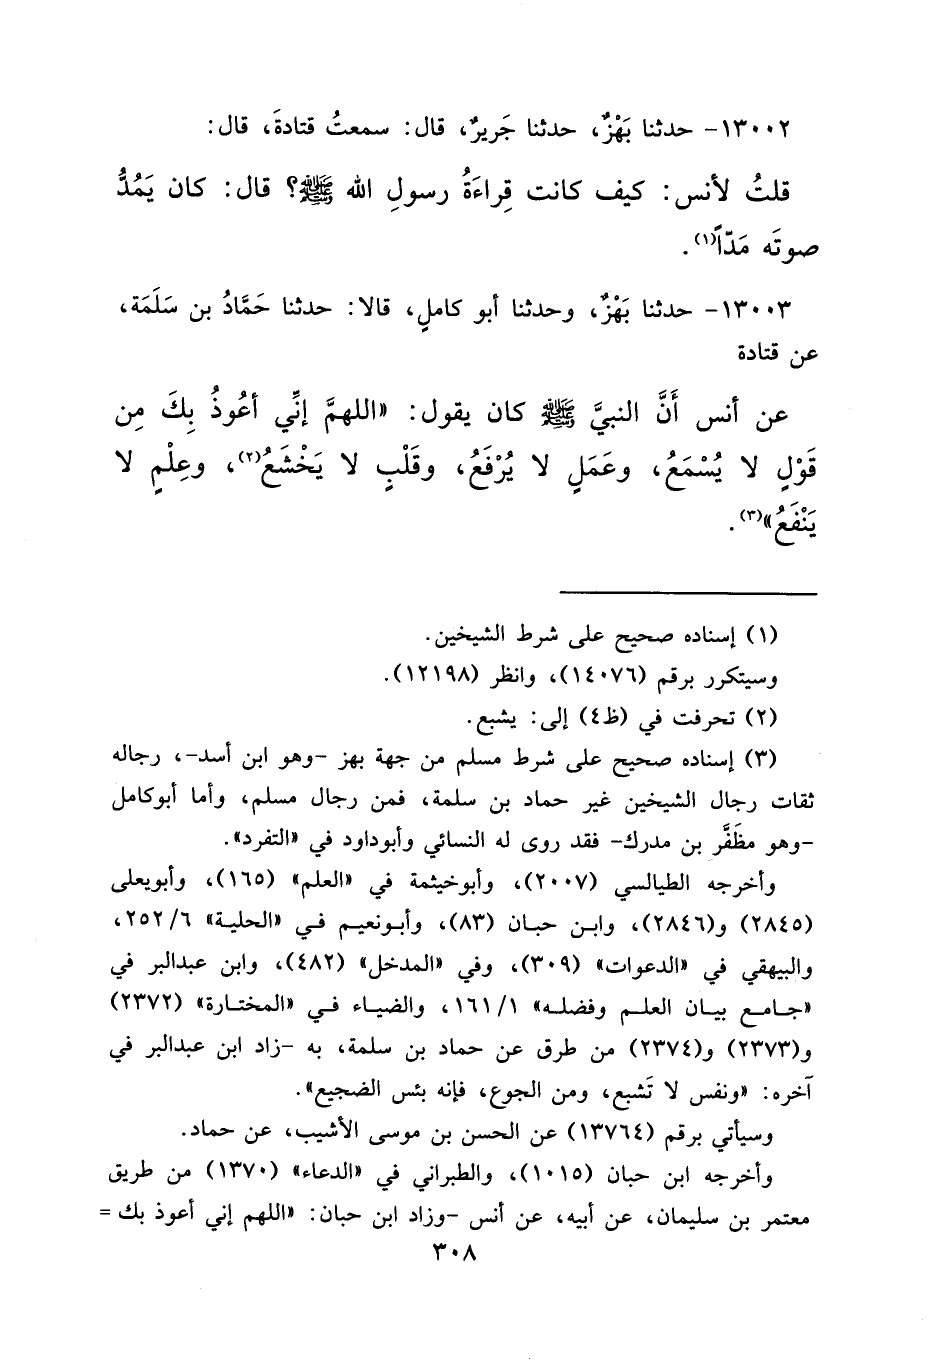 ١٣٠٠٢- حدثنا بَهْزٌ، حدثنا جَريرٌ، قال: سمعتُ قتادةَ، قال:
قلتُ لأنس: كيف كانت قِراءَةُ رسولِ الله ﷺ؟ قال: كان يَمُدُّ
صوتَه مَدّاً(١).
١٣٠٠٣- حدثنا بَهْزٌ، وحدثنا أبو كاملٍ، قالا: حدثنا حَمَّادُ بن سَلَمَة،
عن قتادة
عن أنس أَنَّ النبيَّ ﷺ كان يقول: «اللهمَّ إنِّي أعُوذُ بِكَ مِن
قَوْلٍ لا يُسْمَعُ، وعَمَلٍ لا يُرْفَعُ، وقَلْبٍ لا يَخْشَعُ(٢)، وعِلْمٍ لا
يَنْفَعُ»(٣).
(١) إسناده صحيح على شرط الشيخين.
وسيتكرر برقم (١٤٠٧٦)، وانظر (١٢١٩٨).
(٢) تحرفت في (ظ٤) إلى: يشبع.
(٣) إسناده صحيح على شرط مسلم من جهة بهز -وهو ابن أسد-، رجاله
ثقات رجال الشيخين غير حماد بن سلمة، فمن رجال مسلم، وأما أبوكامل
-وهو مظَفَّر بن مدرك- فقد روى له النسائي وأبوداود في «التفرد».
وأخرجه الطيالسي (٢٠٠٧)، وأبوخيثمة في «العلم» (١٦٥)، وأبويعلى
(٢٨٤٥) و(٢٨٤٦)، وابن حبان (٨٣)، وأبونعيم في «الحلية» ٢٥٢/٦،
والبيهقي في «الدعوات» (٣٠٩)، وفي «المدخل» (٤٨٢)، وابن عبدالبر في
«جامع بيان العلم وفضله» ١٦١/١، والضياء في «المختارة» (٢٣٧٢)
و(٢٣٧٣) و(٢٣٧٤) من طرق عن حماد بن سلمة، به -زاد ابن عبدالبر في
آخره: «ونفس لا تَشبع، ومن الجوع، فإنه بئس الضجيع».
وسيأتي برقم (١٣٧٦٤) عن الحسن بن موسى الأشيب، عن حماد.
وأخرجه ابن حبان (١٠١٥)، والطبراني في «الدعاء» (١٣٧٠) من طريق
معتمر بن سليمان، عن أبيه، عن أنس -وزاد ابن حبان: «اللهم إني أعوذ بك =
٣٠٨